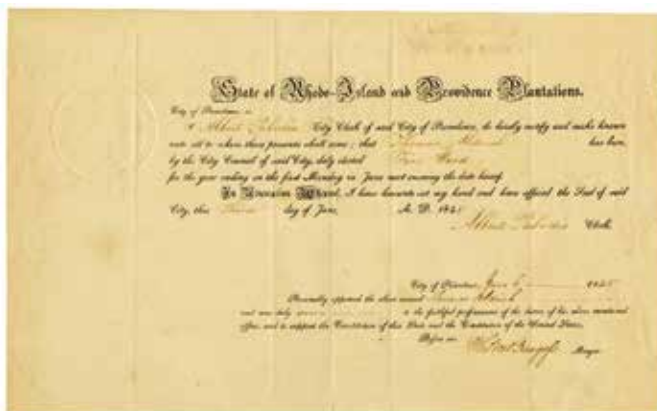 State of Rhode-Island and Providence Plantations.
City of Providence, ss.
I Albert Pabodie City Clerk of said City of Providence, do hereby certify and make known
unto all to whom these presents shall come; that Thomas has been
by the City Council of said City, duly elected Fire Ward
for the year ending on the first Monday in June next ensuing the date hereof.
In Testimony Whereof, I have hereunto set my hand and have affixed the Seal of said
City, this day of June, A. D. 184
Albert Pabodie Clerk.
City of Providence, June 184
Personally appeared the above named
and was duly to the faithful performance of the duties of the above mentioned
office, and to support the Constitution of this State and the Constitution of the United States.
Before me,
Mayor.